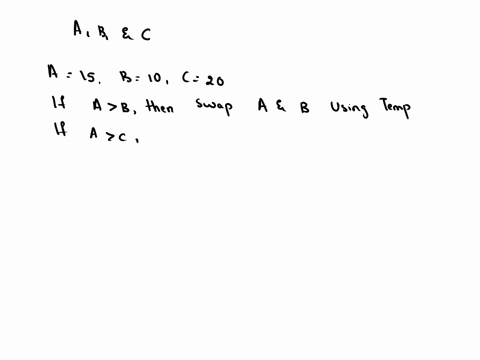 A, B & C
A = 15, B = 10, C = 20
If A > B, then swap A & B Using Temp
If A > C,